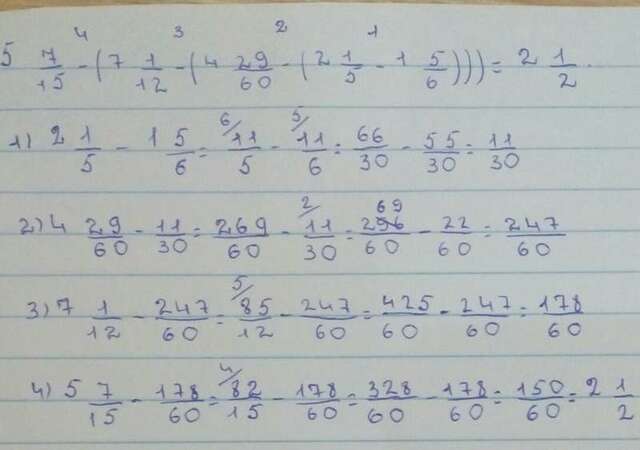 4 3 2 1
5 7/15 - (7 1/12 - (4 29/60 - (2 1/5 - 1 5/6))) = 2 1/2.
1) 2 1/5 - 1 5/6 = 6/ 11/5 - 5/ 11/6 = 66/30 - 55/30 = 11/30
2) 4 29/60 - 11/30 = 269/60 - 2/ 11/30 = 269/60 - 22/60 = 247/60
3) 7 1/12 - 247/60 = 5/ 85/12 - 247/60 = 425/60 - 247/60 = 178/60
4) 5 7/15 - 178/60 = 4/ 82/15 - 178/60 = 328/60 - 178/60 = 150/60 = 2 1/2